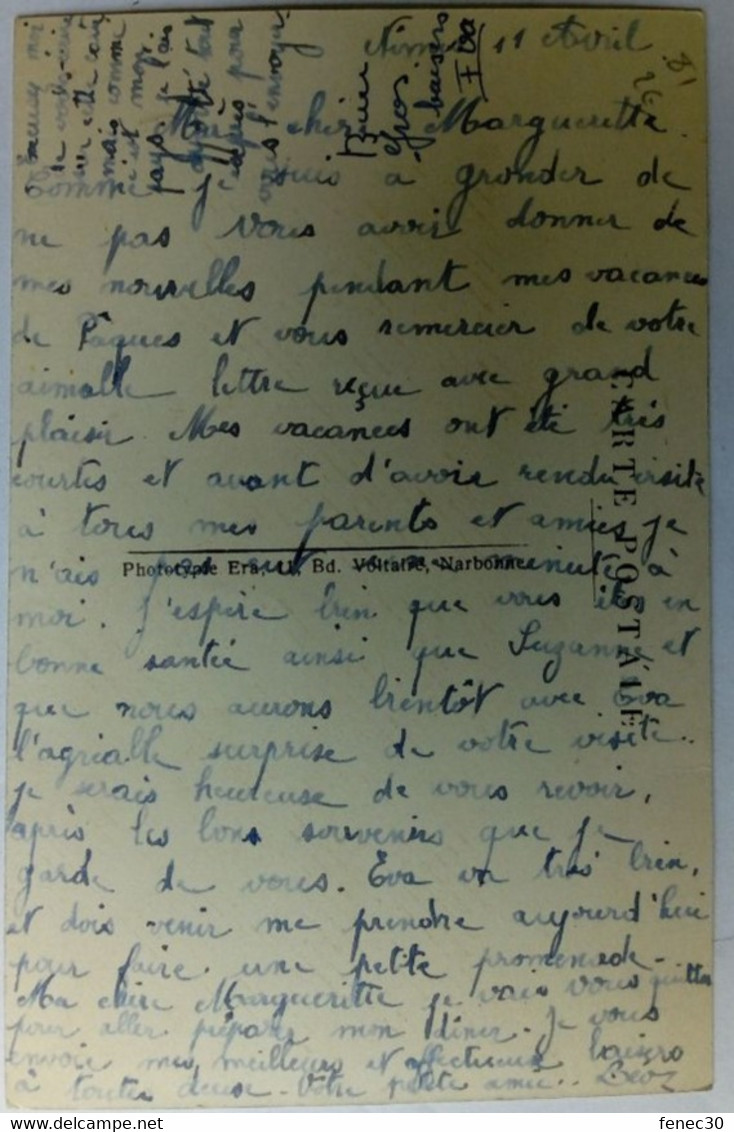 11 Avril
Ma chère Margueritte
Comme je suis a gronder de
ne pas vous avoir donner de
mes nouvelles pendant mes vacances
de Pâques et vous remercier de votre
aimable lettre reçue avec grand
plaisir. Mes vacances ont été très
courtes et avant d'avoir rendu visite
à tous mes parents et amies je
n'ais pas eut une minute à
moi. J'espère bien que vous êtes en
bonne santée ainsi que Suzanne et
que nous aurons bientôt avec Eva
l'agréable surprise de votre visite.
je serais heureuse de vous revoir,
après les bons souvenirs que je
garde de vous. Eva va très bien,
et dois venir me prendre aujourd'hui
pour faire une petite promenade.
Ma chère Margueritte je vais vous quitter
pour aller préparer mon diner. Je vous
envoie mes meilleurs et affectueux baisers
à toutes deux. Votre petite amie..
Gros
baisers
Eva
mais comme
c'est mon
pays, je l'ais
apporté tout
exprès pour
vous l'envoyer
CARTE POSTALE
Phototypie Era, 11, Bd. Voltaire, Narbonne
fenec30